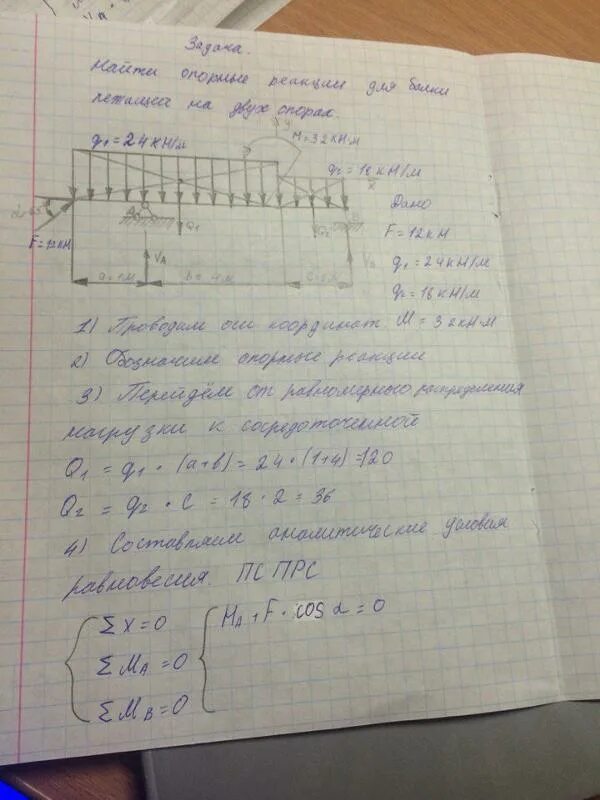 Задача.
Найти опорные реакции для балки
лежащей на двух опорах.
y
q₁ = 24 кН/м
M = 32 кН·м
q₂ = 18 кН/м
x
Дано
A
Q₁
Q₂
F = 12 кН
F = 12 кН
V_A
q₁ = 24 кН/м
a = 1 м
b = 4 м
q₂ = 18 кН/м
1) Проводим оси координат M = 32 кН·м
2) Обозначим опорные реакции
3) Перейдём от равномерного распределения
нагрузки к сосредоточенной
Q₁ = q₁ · (a+b) = 24 · (1+4) = 120
Q₂ = q₂ · C = 18 · 2 = 36
4) Составляем аналитические условия
равновесия. ПС ПРС
∑ X = 0
H_A + F · cos α = 0
∑ M_A = 0
∑ M_B = 0